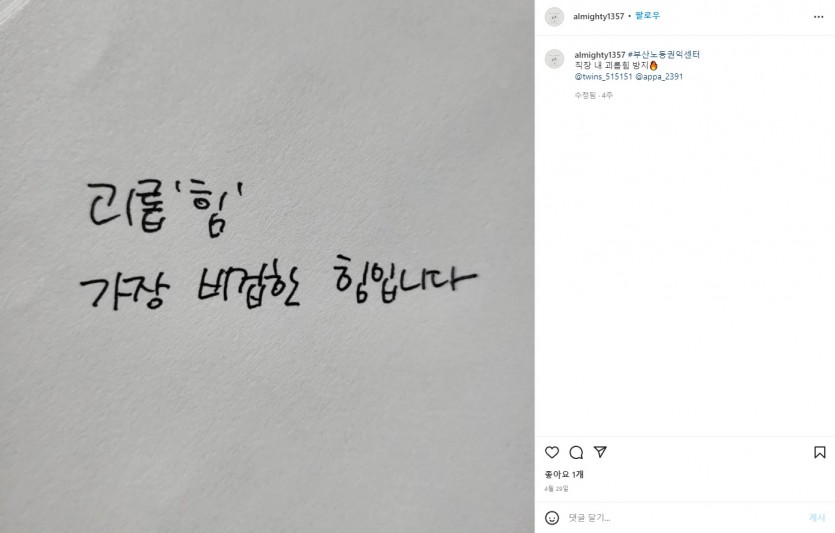 괴롭'힘'
가장 비겁한 힘입니다
almighty1357 • 팔로우
almighty1357 #부산노동권익센터
직장 내 괴롭힘 방지🔥
@twins_515151 @appa_2391
수정됨 · 4주
좋아요 1개
4월 29일
댓글 달기...
게시